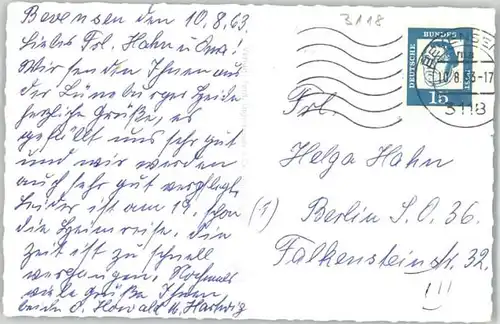 Bevensen den 10.8.63.
Liebes Frl. Hahn u. Omi!
Wir senden Ihnen aus
der Lüneburger Heide
herzliche Grüße, es
gefällt uns sehr gut
und wir werden
auch sehr gut verpflegt.
Leider ist am 19. schon
die Heimreise. Die
Zeit ist zu schnell
vergangen. Nochmals
viele Grüße Ihnen
beiden S. Howald u. Hartwig
3118
DEUTSCHE
BUNDESPOST
15
10.8.63-17
3118
Frl.
Helga Hahn
(1) Berlin S.O. 36.
Falkensteinstr. 32.